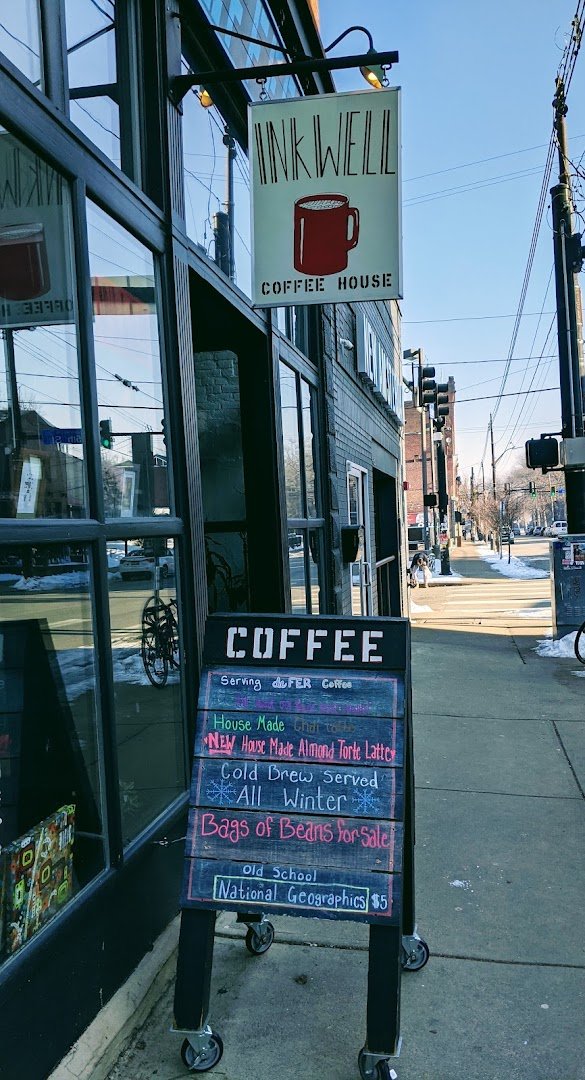 INKWELL
COFFEE HOUSE
COFFEE
Serving deFER Coffee
House Made Chai Latte
NEW House Made Almond Torte Latte
Cold Brew Served
All Winter
Bags of Beans for sale
Old School
National Geographics $5